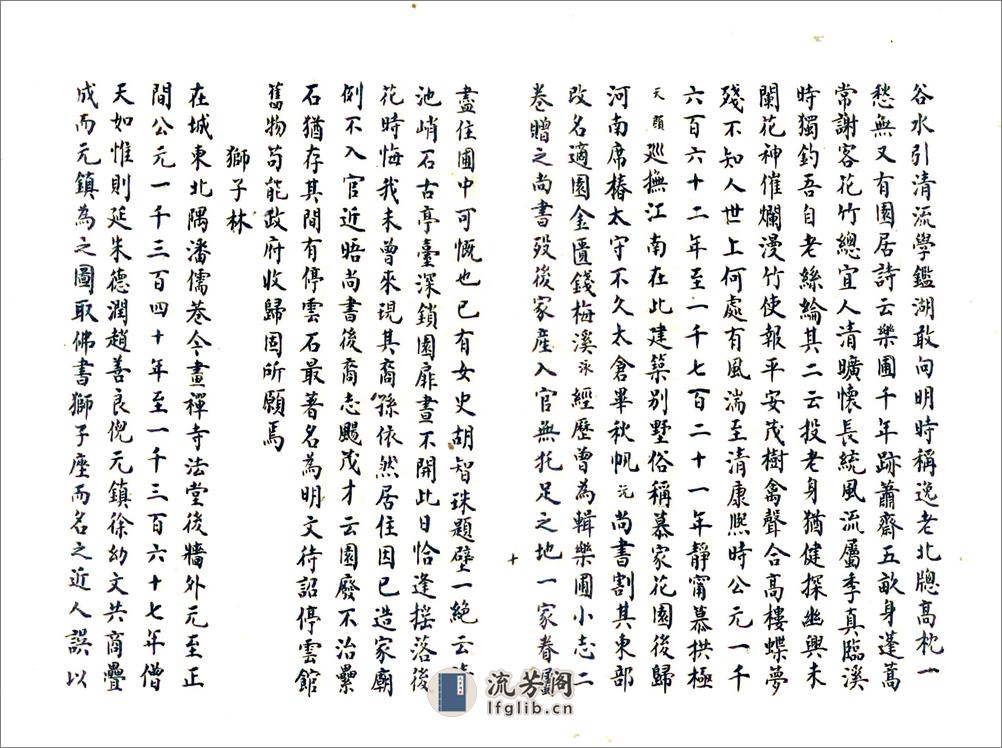 谷水引清流學鑑湖敢向明時稱逸老北牕高枕一
愁無又有園居詩云樂圃千年跡蕭齋五畝身蓬蒿
常謝客花竹總宜人清曠懷長統風流屬季真臨溪
時獨釣吾自老絲綸其二云投老身猶健探幽興未
闌花神催爛漫竹使報平安茂樹禽聲合高樓蝶夢
殘不知人世上何處有風湍至清康熙時公元一千
六百六十二年至一千七百二十一年靜甯慕拱極
天顏巡撫江南在此建築別墅俗稱慕家花園後歸
河南席椿太守不久太倉畢秋帆沅尚書割其東部
改名適園金匱錢梅溪泳經歷曾為輯樂圃小志二
卷贈之尚書歿後家産入官無托足之地一家眷屬
十
盡住圃中可慨也已有女史胡智珠題壁一絕云
池峭石古亭臺深鎖園扉晝不開此日恰逢摇落後
花時悔我未曾來現其裔孫依然居住因已造家廟
例不入官近晤尚書後裔志颺茂才云園廢不治纍
石猶存其間有停雲石最著名為明文待詔停雲館
舊物苟能政府收歸固所願焉
獅子林
在城東北隅潘儒巷今畫禪寺法堂後牆外元至正
間公元一千三百四十年至一千三百六十七年僧
天如惟則延朱德潤趙善良倪元鎮徐幼文共商疊
成而元鎮為之圖取佛書獅子座而名之近人誤以
流芳閣
lfglib.cn